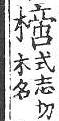 式志切
木名